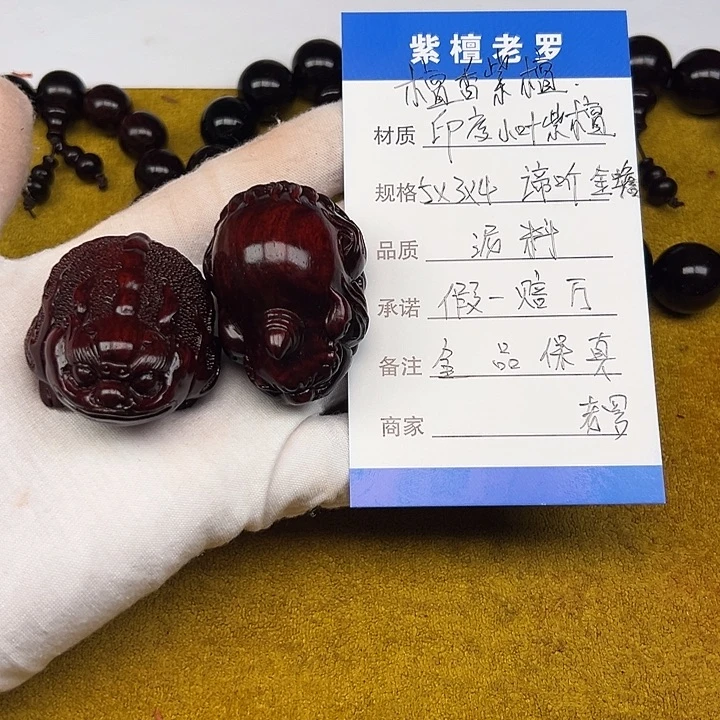 紫檀老罗
檀香紫檀.
材质 印度小叶紫檀
规格 5x3x4 谛听 金蟾
品质 泥料
承诺 假一赔万
备注 全品保真
商家 老罗